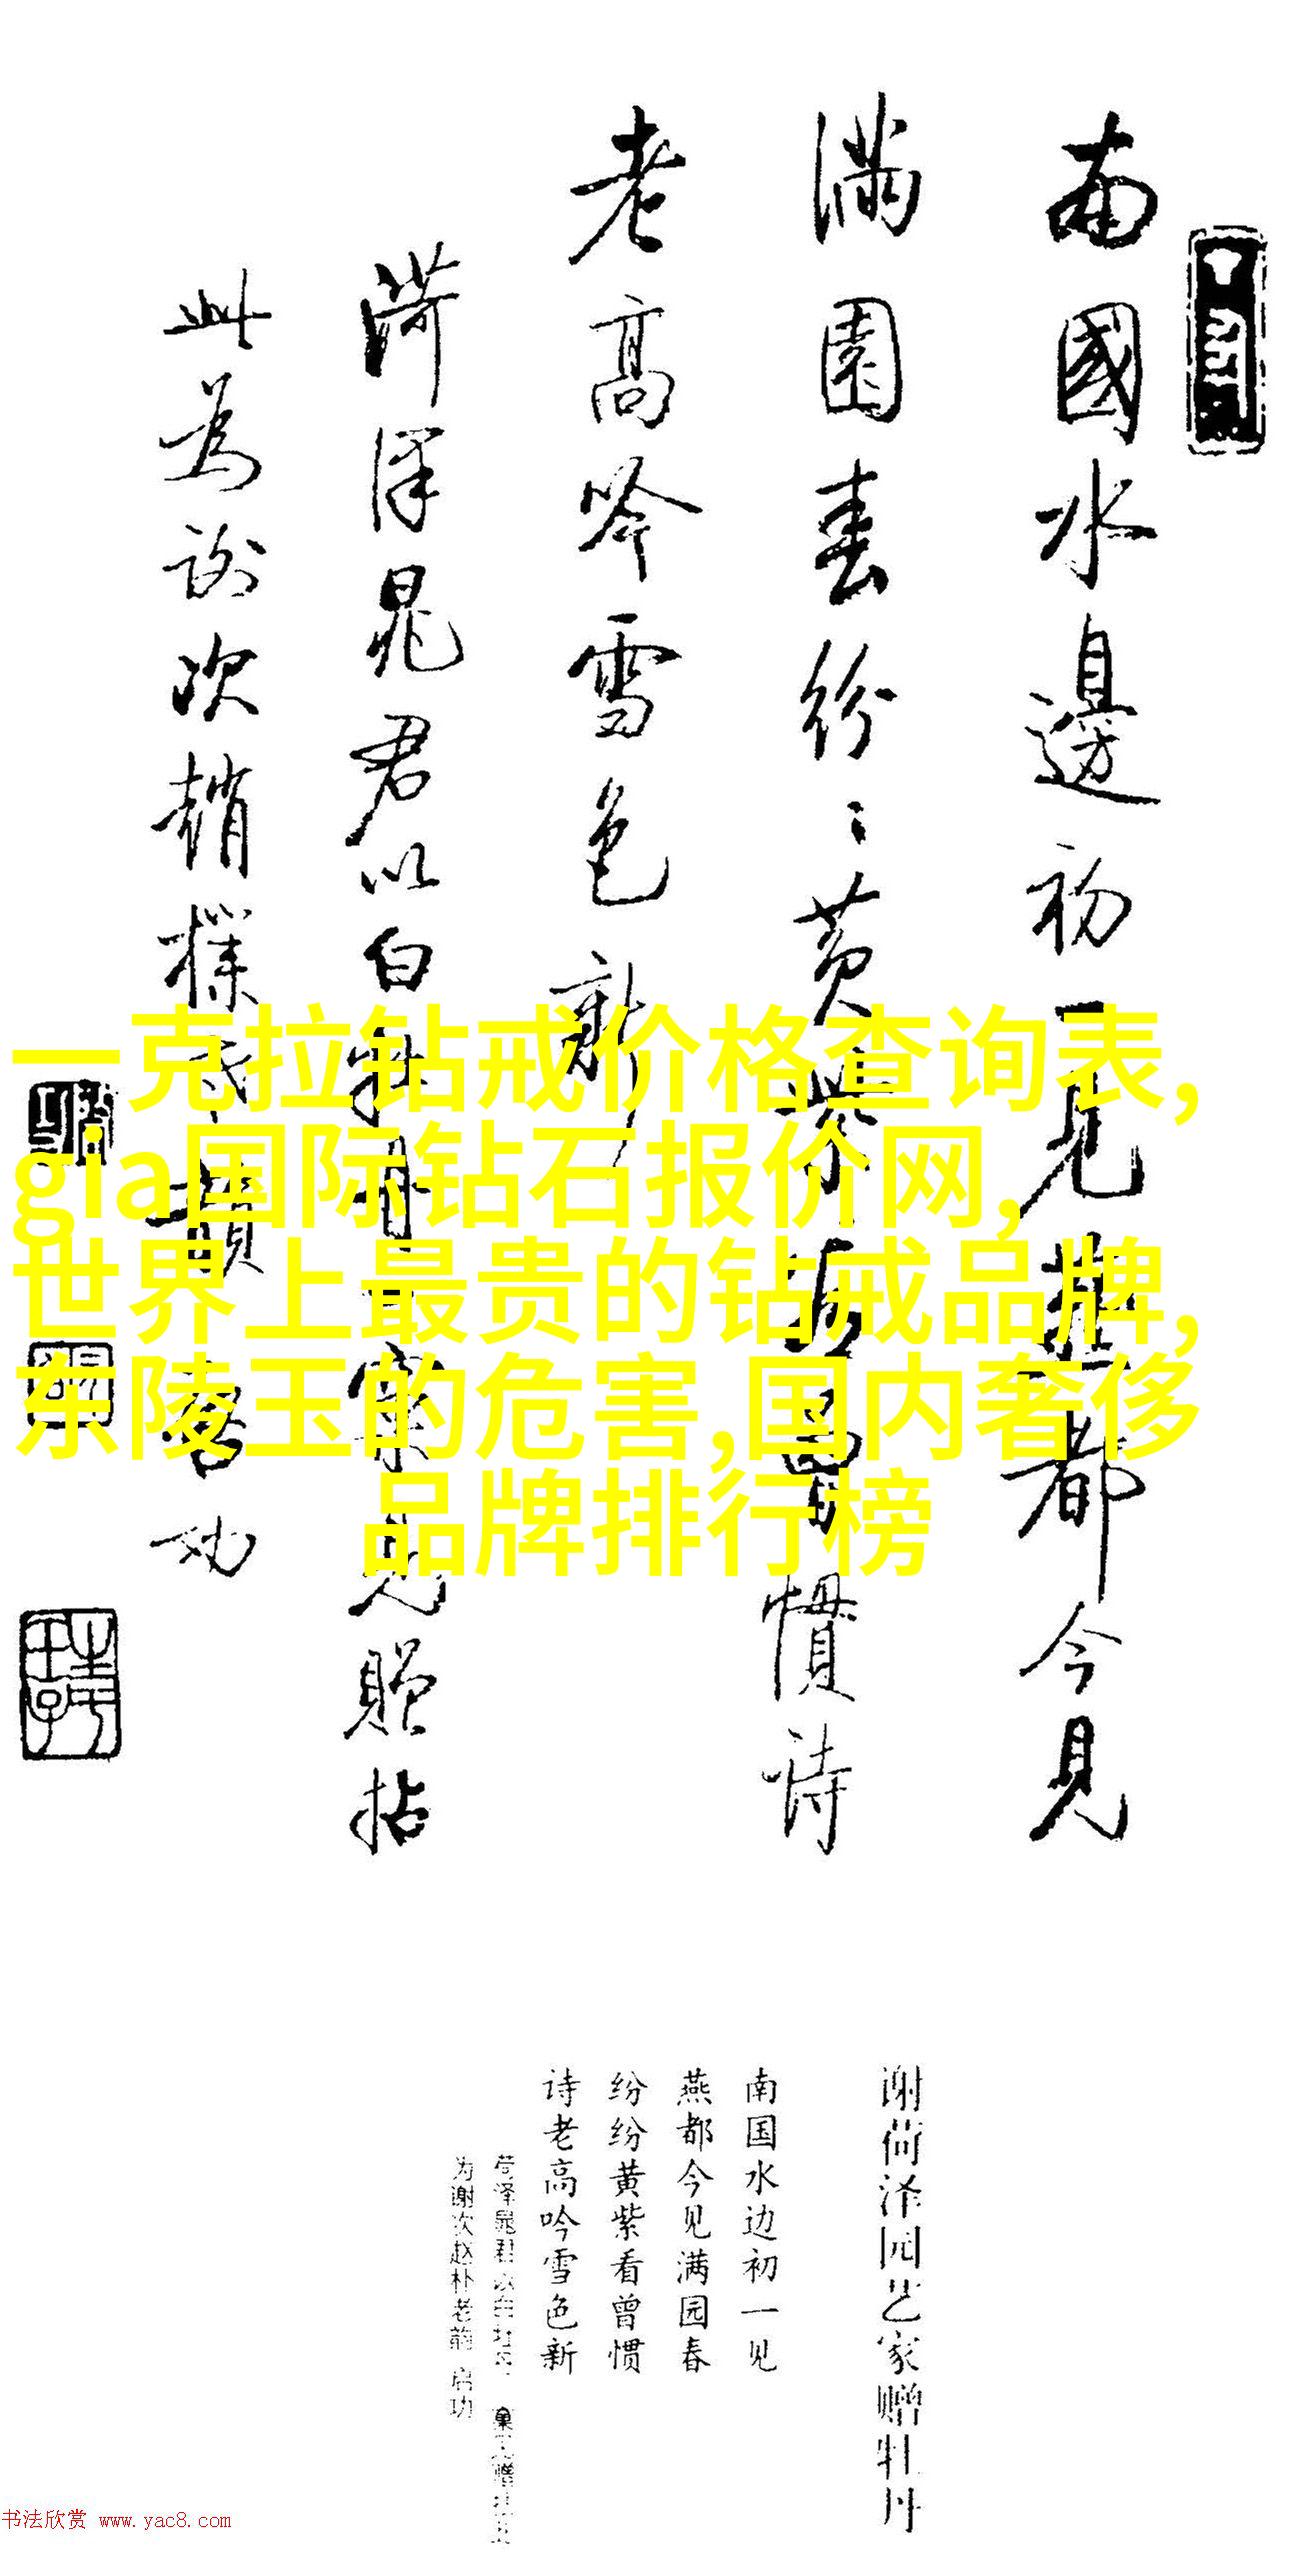 南國水邊初一見燕都今見
滿園春紛〻黄紫看曾慣詩
老高吟雪色新
菏澤晁君以白牡丹一窠見贈拈
此為謝次趙樸老韻 启功
一克拉钻戒价格查询表,
gia国际钻石报价网,
世界上最贵的钻戒品牌,
东陵玉的危害,国内奢侈
品牌排行榜
谢荷泽园艺家赠牡丹
南国水边初一见
燕都今见满园春
纷纷黄紫看曾惯
诗老高吟雪色新
为谢次赵朴老韵 启功
书法欣赏 www.yac8.com